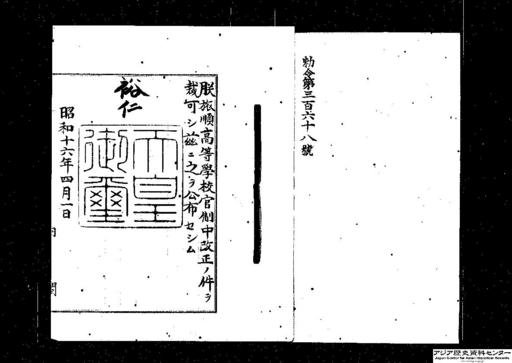 勅令第三百六十八號
朕旅順高等學校官制中改正ノ件ヲ
裁可シ茲ニ之ヲ公布セシム
裕仁
天皇
御璽
昭和十六年四月一日
内閣
アジア歴史資料センター
Japan Center for Asian Historical Records